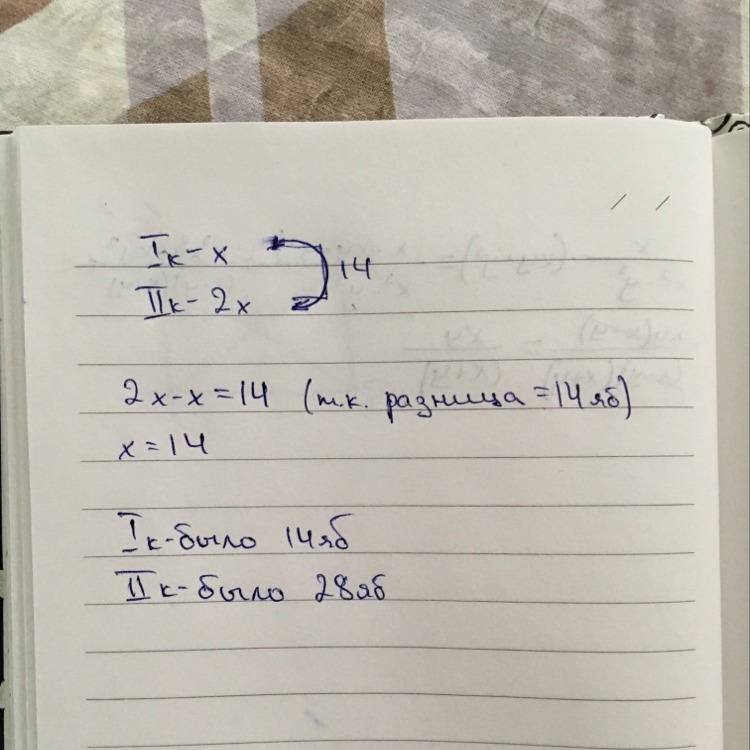 Iк - x
14
IIк - 2x
2x - x = 14 (т.к. разница = 14 яб)
x = 14
Iк - было 14 яб
IIк - было 28 яб